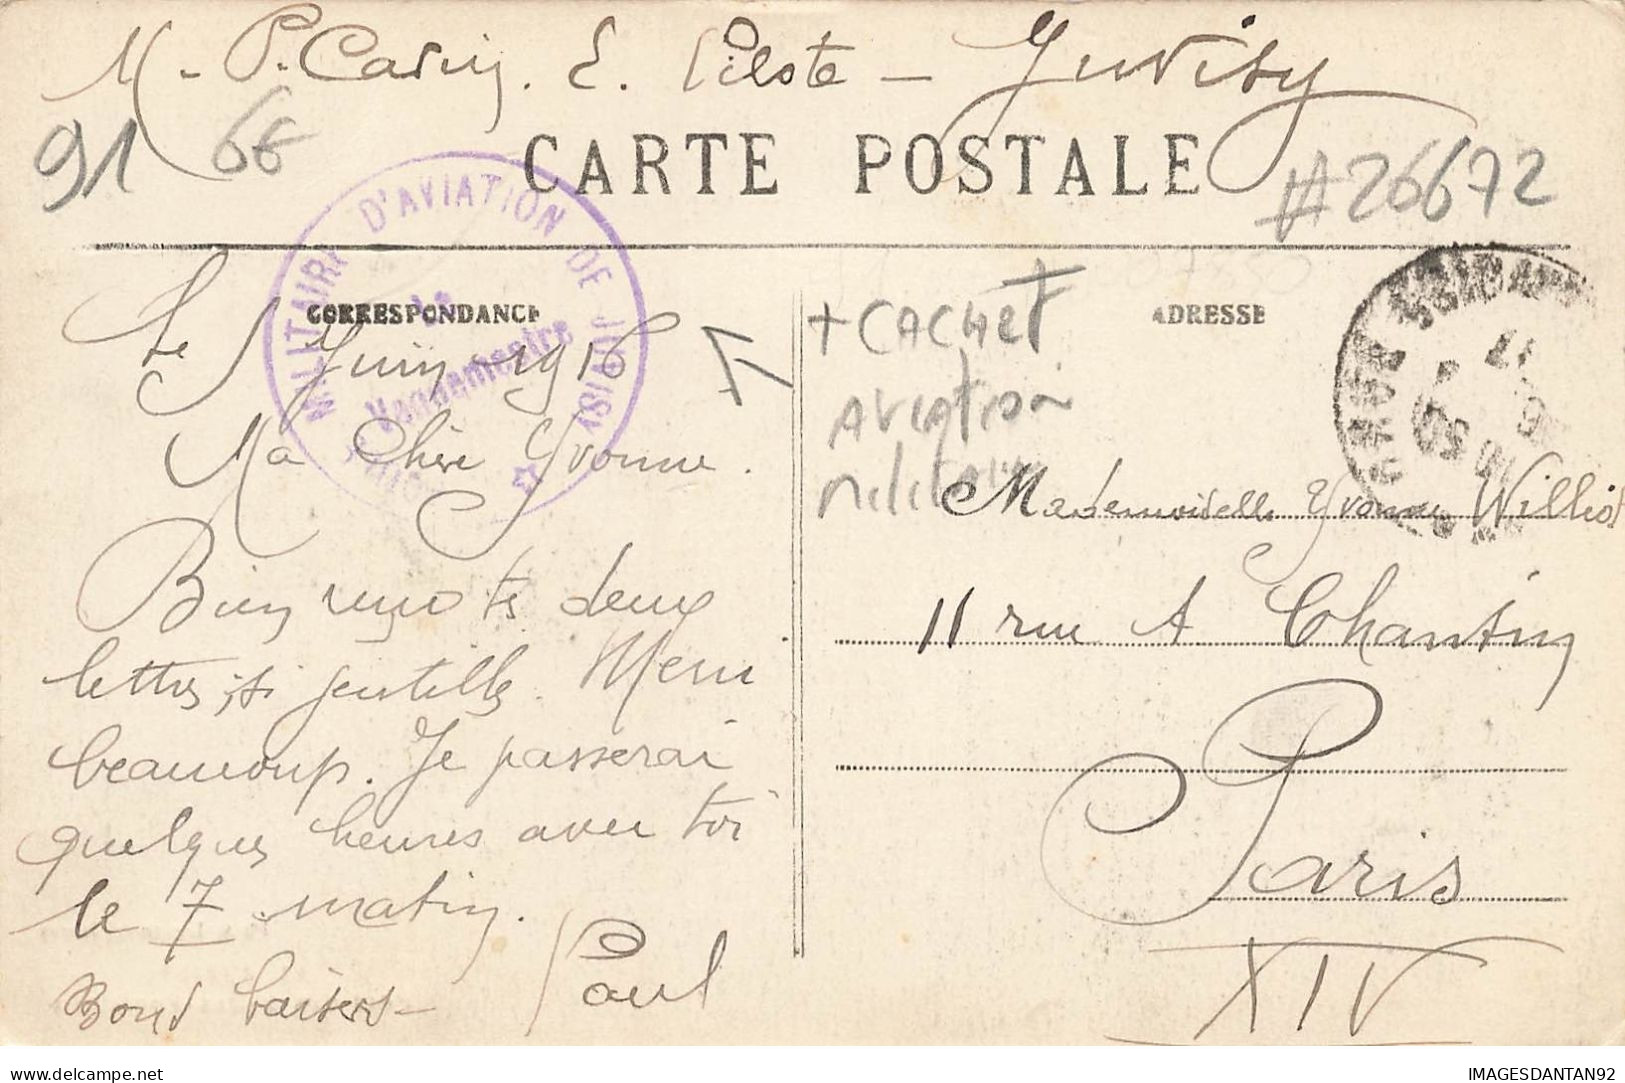 M. P. Carin. E. Pilote — Juvisy
91 6E
CARTE POSTALE
#26672
MILITAIRE D'AVIATION DE JUVISY
Le Vaguemestre
CORRESPONDANCE
ADRESSE
+ CACHET
AVIATION
MILITAIRE
Le 5 Juin 1916
Ma Chère Yvonne.
Bien reçu tes deux
lettres si gentilles. Merci
beaucoup. Je passerai
quelques heures avec toi
le 7 matin.
Bons baisers — Paul
Mademoiselle Yvonne Williot
11 rue A Chantin
Paris
XIV
IMAGESDANTAN92